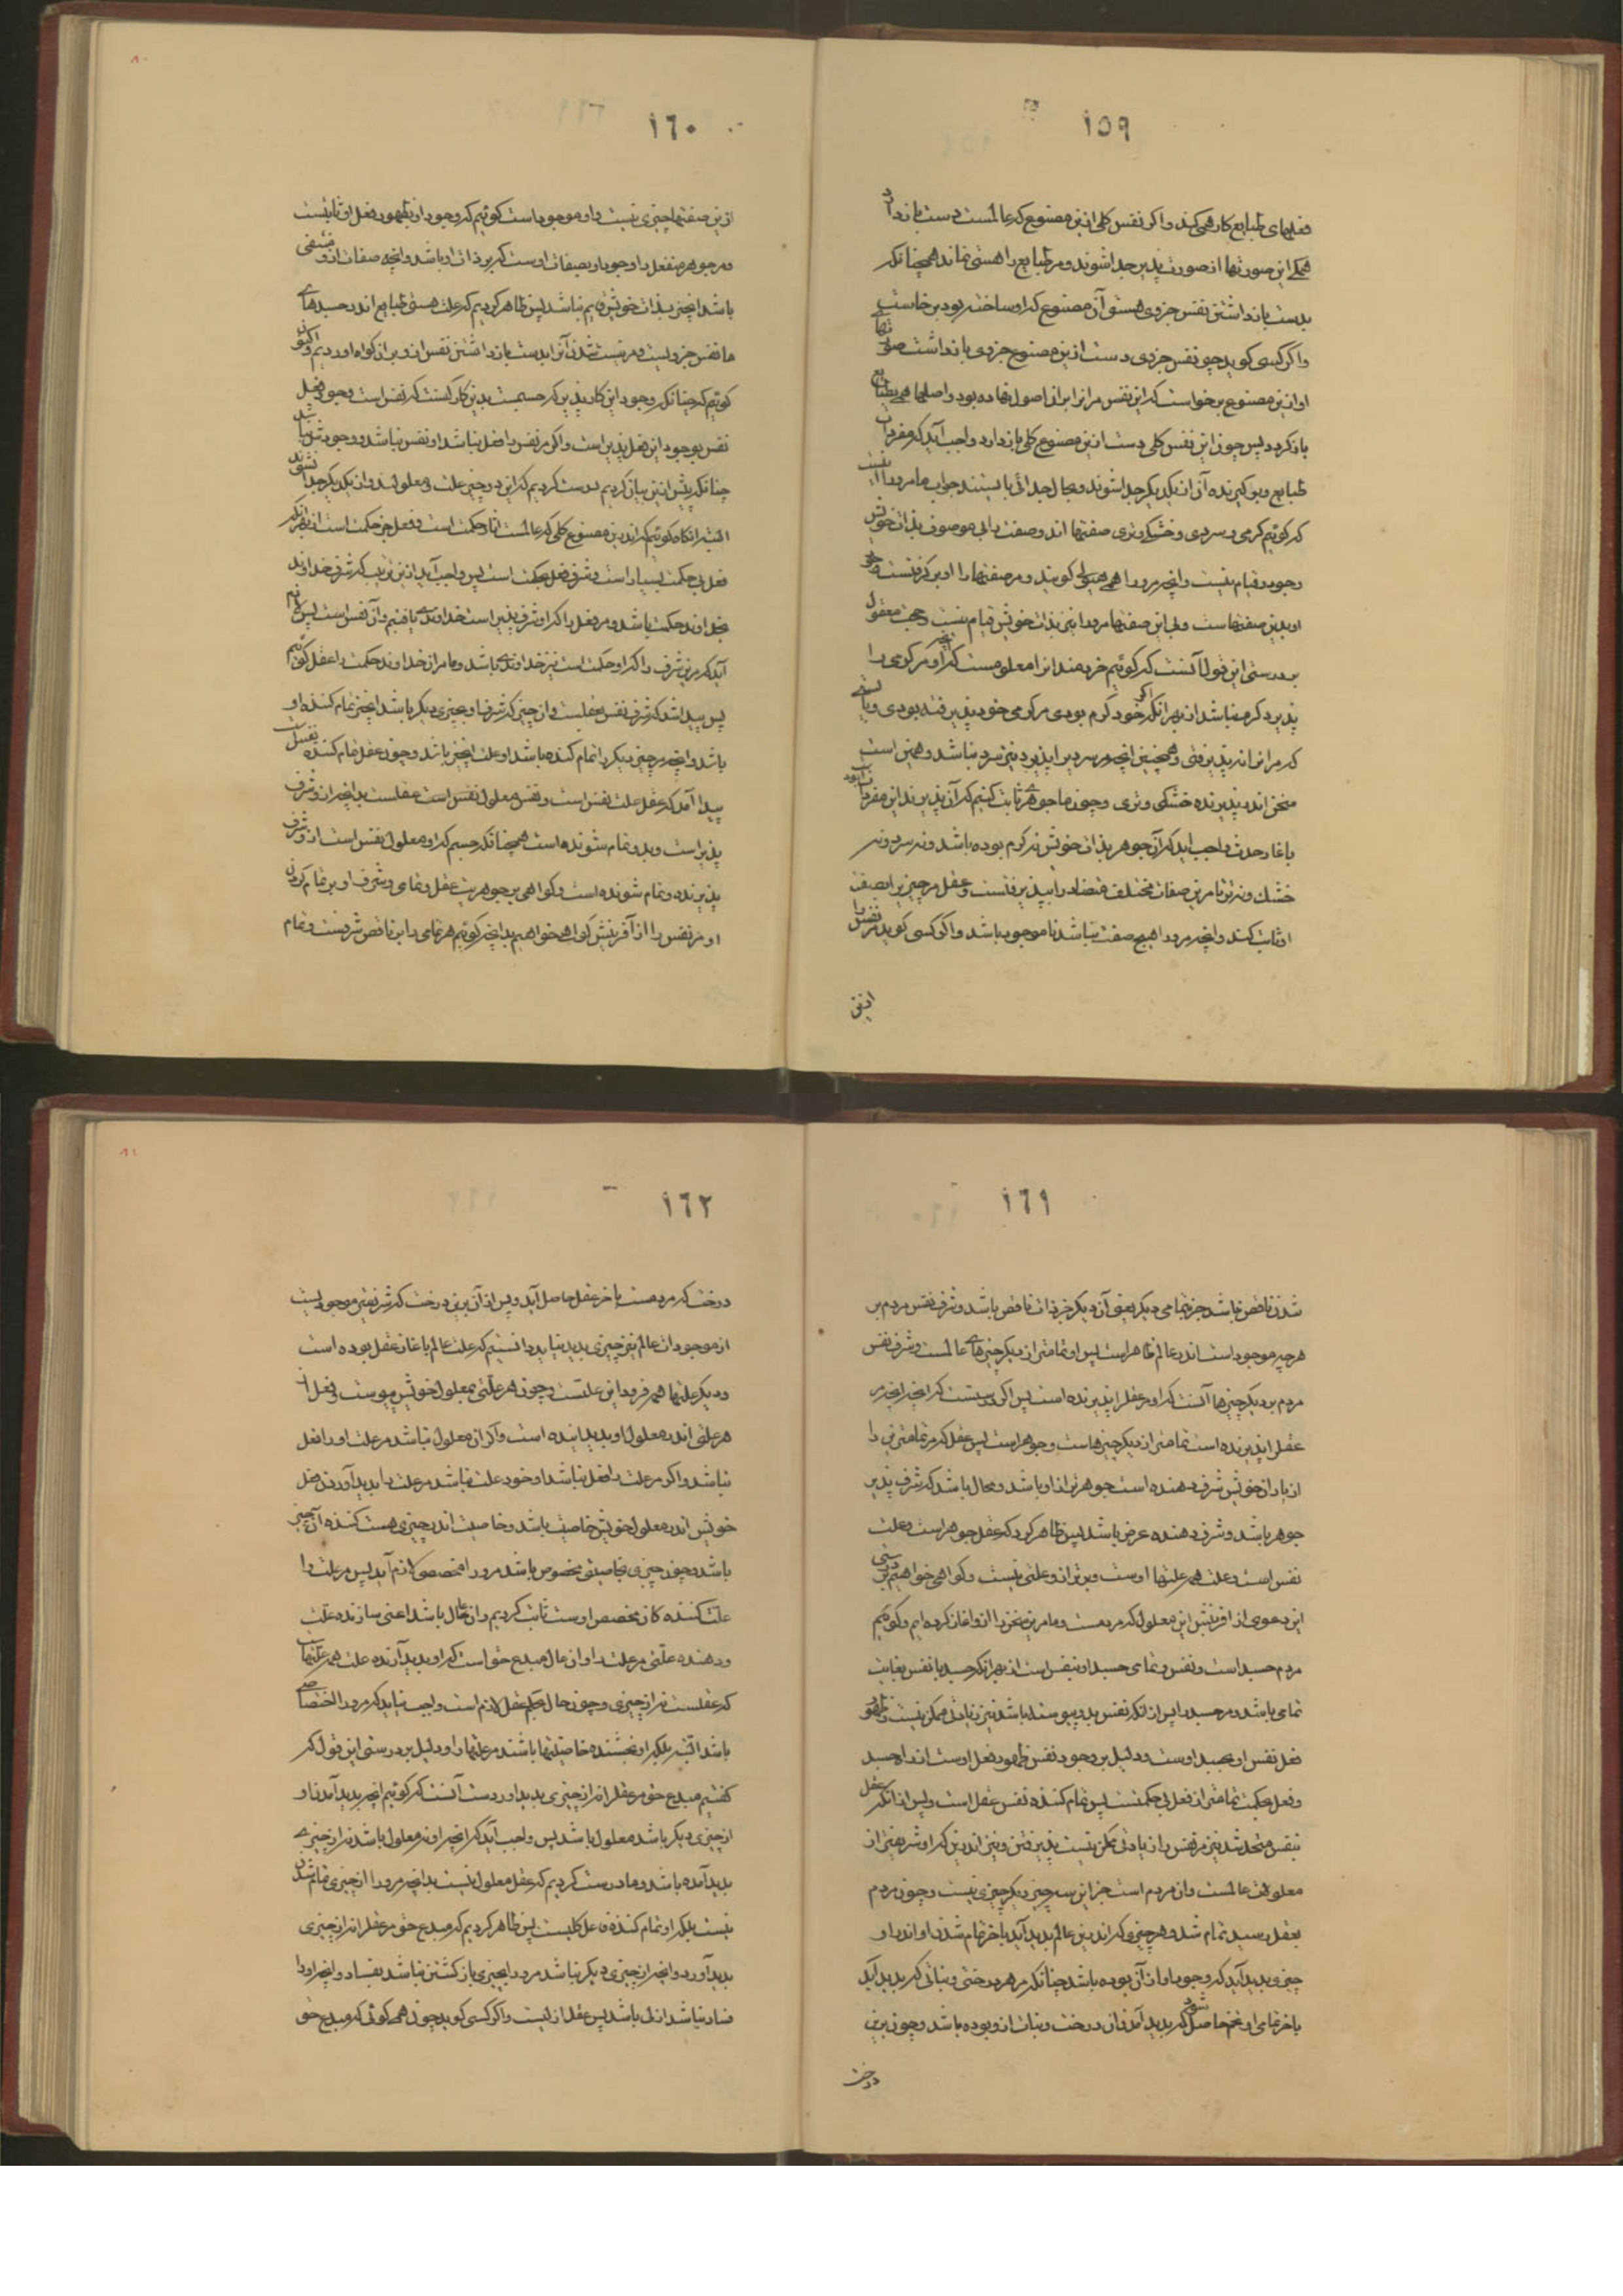 ١٥٩
فعلهای طبایع کار همی کند و اگر نفس کلی ازین مصنوع که عالمست دست باز دارد
همگی این صورتها از صورت پذیر جدا شوند و مر طبایع را هستی نماند همچنانکه
بدست باز داشتن نفس جزوی هستی آن مصنوع که او ساخته بود برخاست
و اگر کسی گوید چو نفس جزوی دست ازین مصنوع جزوی باز داشت صورتهای
او ازین مصنوع برخواست که این نفس مر انرا بران اصول نهاده بود و اصلها همی بطبایع
باز گردد پس چون این نفس کلی دست ازین مصنوع کلی باز دارد واجب آید که مفردات
طبایع و پذیرنده آن از یکدیگر جدا شوند و بحال جدائی بایستند جواب ما مر او را آنست
که گوئیم گرمی و سردی و خشکی و تری صفتها اند و صفت را بی موصوف بذات خویش
وجود و قیام نیست و انچه مرورا همی هیولی گویند و مر صفتها را او برگرفتست وجود
او بدین صفتهاست و بی این صفتها مرورا نیز بذات خویش قیام نیست و حجت معقول
بر درستی این قول آنست که گوئیم خردمندانرا معلومست که انچه او مر گرمی را
پذیرد گرم نباشد از بهر انکه اگر خود گرم بودی مر گرمی خود پذیرفته بودی و نبایستی
که مر انرا اندر پذیرفتی و همچنین انچه مر سردیرا پذیرد نیز سرد نباشد و همین است
سخن اندر پذیرنده خشکی و تری و چون ما جوهری ثابت کنیم که آن پذیرند این مفردات بود
باغاز حدث واجب اید که آن جوهر بذات خویش نه گرم بوده باشد و نه سرد و نه
خشک و نه تر تا مرین صفات مختلف متضاد را بپذیرفتست و عقل مر چیزیرا بصفت
اثبات کند و انچه مرورا هیچ صفت نباشد ناموجود باشد و اگر کسی گوید مر نفس را
ازین
١٦٠
ازین صفتها چیزی نیست و او موجود است گوئیم که وجود او بظهور فعل او ثابتست
و مر جوهر منفعل را وجود او بصفات اوست که بر ذات او باشد و انچه صفات ازو منتفی
باشد انچیز بذات خویش قایم نباشد پس ظاهر کردیم که علت هستی طبایع اندر جسدهای
ما نفس جزویست و مر نیست شدن آنرا بدست باز داشتن نفس ازو بران گواه اوردیم و اکنون
گوئیم که چنانکه وجود این کار پذیر که جسمست بدین کارکنست که نفس است وجود فعل
نفس بوجود این فعل پذیر است و اگر مر نفس را فعل نباشد او نفس نباشد و وجودش نباشد
چنانکه پیش ازین بیان کردیم درست کردیم که این دو چیز علت و معلول اند و از یکدیگر جدا نشوند
البته انگاه گوئیم که اندرین مصنوع کلی که عالمست اثار حکمت است و فعل جز حکمت است از بهر انکه
فعل بی حکمت بسیار است و شرف فعل بحکمت است پس واجب آید ازین ترتیب که شرف خداوند
فعل خداوند حکمت باشد و مر فعل را که او شرف پذیر است خداوندی یافتیم و آن نفس است پس لازم
آید که مرین شرف را که او حکمت است نیز خداوندی باشد و ما مر ان خداوند حکمت را عقل گوئیم
پس پیدا شد که شرف نفس بعقلست و ان چیز که شرف او بچیزی دیگر باشد انچیز تمام کننده او
باشد و انچه مر چیزی دیگر را تمام کننده باشد او علت انچیز باشد و چون عقل تمام کننده نفسست
پیدا آمد که عقل علت نفس است و نفس معلول نفس است عقلست بدانچه ازو شرف
پذیر است و بدو تمام شونده است همچنانکه جسم که او معلول نفس است ازو شرف
پذیرنده و تمام شونده است و گواهی بر جوهریت عقل و تمامی و شرف او بر تمام کردن
او مر نفس را از آفرینش گواهی خواهیم بدانچه گوئیم هر تمامی را بر ناقص شرفست و تمام
١٦١
شدن ناقص نباشد جز بتمامی دیگر یعنی آن دیگر جز ذات ناقص باشد و شرف نفس مردم بر
هر چیز موجود است اندر عالم ظاهر است پس او تمامتر از دیگر چیزهای عالمست و شرف نفس
مردم بر دیگر چیزها آنست که او مر عقل را پذیرنده است پس اگر درستست که انچه انچه مر
عقل را پذیرنده است تمامتر از دیگر چیزهاست و جوهر است پس عقل که مر تمامترین را
از یاران خویش شرف دهنده است جوهر تر ازو باشد و محال باشد که شرف پذیر
جوهر باشد و شرف دهنده عرض باشد پس ظاهر کرد که عقل جوهر است و علت
نفس است و علت همه علتها اوست و برتر ازو علتی نیست و گواهی خواهیم بر درستی
این دعوی از افرینش این معلول که مردمست و ما مرین سخن را ازو اغاز کرده ایم و گوئیم
مردم جسد است و نفس و تمامی جسد او بنفس است از بهر انکه جسد با نفس بغایت
تمامی باشد و مر جسد را پس از انکه نفس بدو پیوسته باشد نیز زیادتی ممکن نیست و ظهور
فعل نفس او بجسد اوست و دلیل بر وجود نفس ظهور فعل اوست اندر جسد
و فعل بحکمت تمامتر از فعل بی حکمتست پس تمام کننده نفس عقل است و پس از انکه عقل
بنفس متحد شد نیز مر نفس را زیادتی ممکن نیست پذیرفتن و نیز اندرین که او شریفتر از
معلولهاء عالمست و ان مردم است جز این سه چیز دیگر چیزی نیست و چون مردم
بعقل رسید تمام شد و هر چیزی که اندرین عالم پدید آید باخر تمام شدن او اندر او
چیزی پدید آید که وجود او از آن بوده باشد چنانکه مر هر درختی و نباتی که پدید آید
باخر تمامی او تخم حاصل شود که پدید آمدن ان درخت و نبات ازو بوده باشد و چون برین
درخت
١٦٢
درخت که مردمست باخر عقل حاصل آید و پس از آن برین درخت که شریفتر موجودیست
از موجودات عالم نیز چیزی پدید نیاید بدانستیم که علت عالم باغاز عقل بوده است
و دیگر علتها همه فرود این علتست و چون هر علتی بمعلول خویش پیوست و فعل
هر علتی اندر معلول او پدید اینده است و اگر ان معلول نباشد مر علت او را فعل
نباشد و اگر مر علت را فعل نباشد او خود علت نباشد مر علت را پدید آوردن فعل
خویش اندر معلول خویش خاصیت باشد و خاصیت اندر چیزی هست کننده آن چیز
باشد و چون چیزی بخاصیتی مخصوص باشد مرورا مخصصی لازم آید پس مر علت را
علت کننده کان مخصص اوست ثابت کردیم و ان عال باشد اعنی سازنده علت
و دهنده علتی مر علت را و ان عال مبدع حق است که او پدید آرنده علت همه علتهاست
که عقلست نه از چیزی و چون حال بحکم عقل لازم است واجب نیاید که مرورا اختصاصی
باشد البته بلکه او بخشنده خاصیتها باشد مر علتها را و دلیل بر درستی این قول که
گفتیم مبدع حق مر عقل را نه از چیزی پدید اورد ست آنست که گوئیم انچه پدید آمدن او
از چیزی دیگر باشد معلول باشد پس واجب آید که انچه او نه معلول باشد نه از چیزی
پدید آمده باشد و ما درست کردیم که عقل معلول نیست بدانچه مرورا از چیزی تمام شدن
نیست بلکه او تمام کننده علل کلیست پس ظاهر کردیم که مبدع حق مر عقل را نه از چیزی
پدید آورد و انچه از چیزی دیگر نباشد مرورا بچیزی باز گشتن نباشد بفساد و انچه او را
فساد نباشد ازلی باشد پس عقل ازلیست و اگر کسی گوید چون همی گوئی که مبدع حق